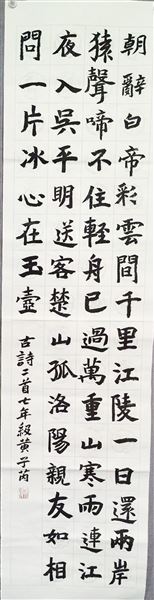 朝辭白帝彩雲間千里江陵一日還兩岸
猿聲啼不住輕身已過萬重山寒雨連江
夜入吳平明送客楚山孤洛陽親友如相
問一片冰心在玉壺
古詩二首七年級黃子芮